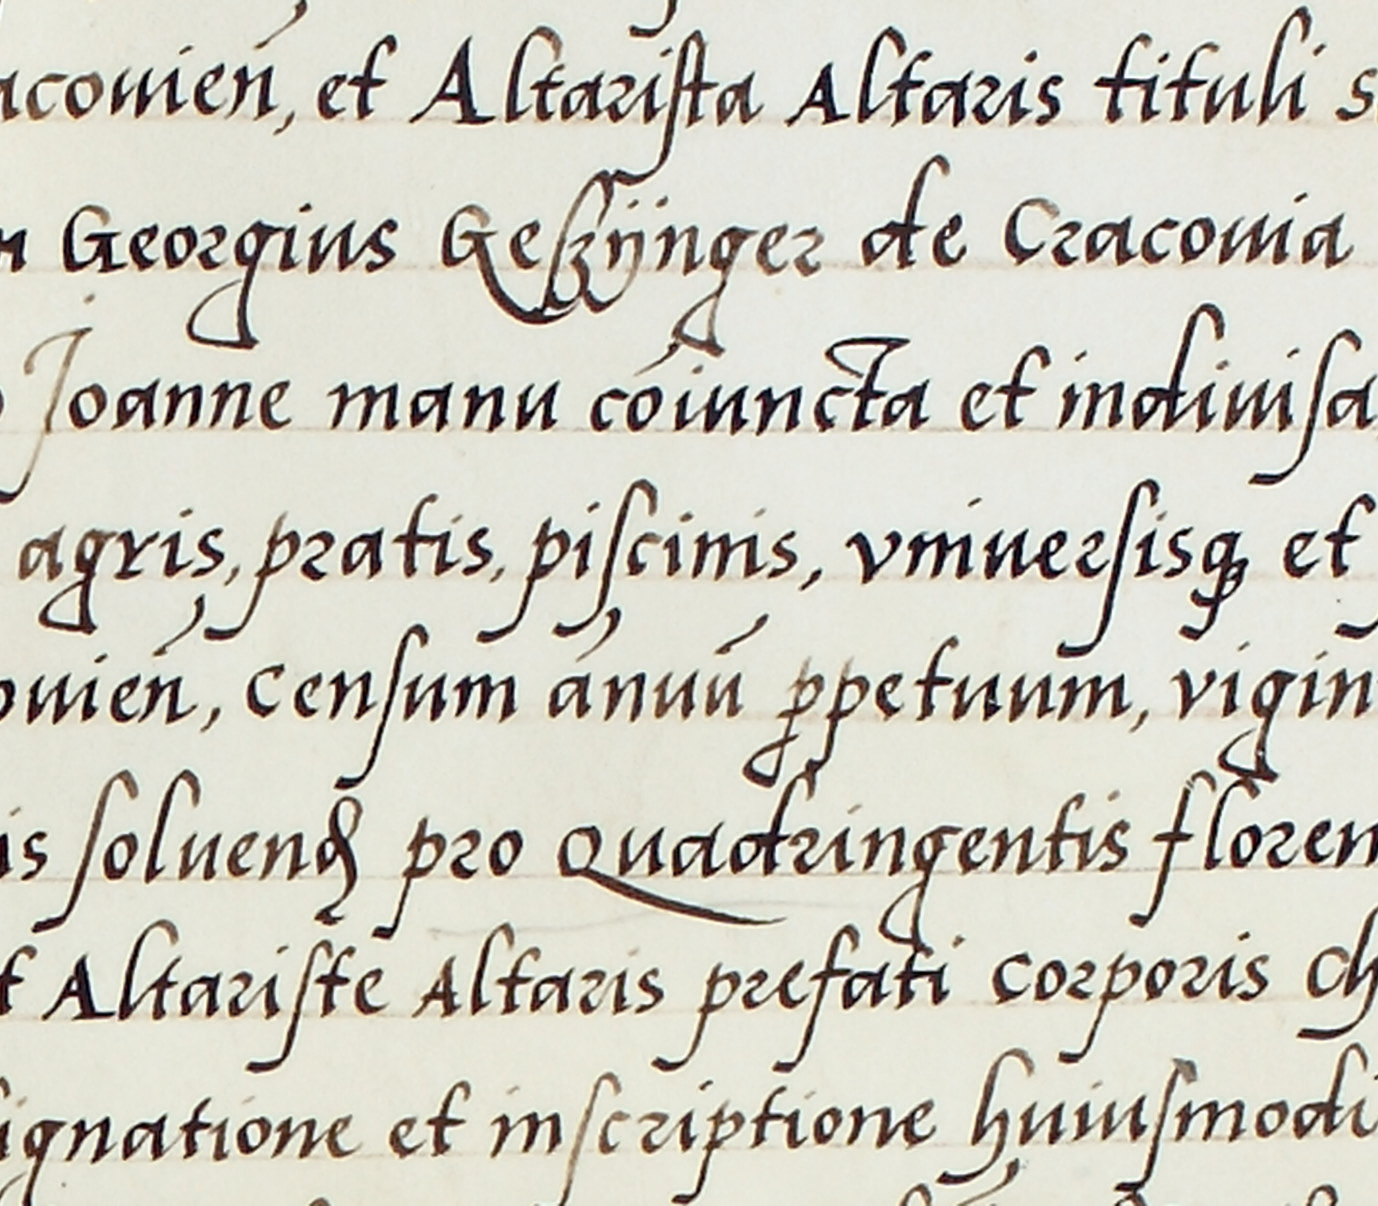 acouien, et Altarista Altaris tituli s
Georgius Geszÿnger de Cracouia
Joanne manu cóiuncta et indiuisa
agris, pratis, piscinis, vniuersisq et
ouień, Censum ánuú ꝑpetuum, vigin
is soluenꝺ pro Quadringentis floren
t Altariste Altaris prefati Corporis Ch
ignatione et inscriptione huiusmodi